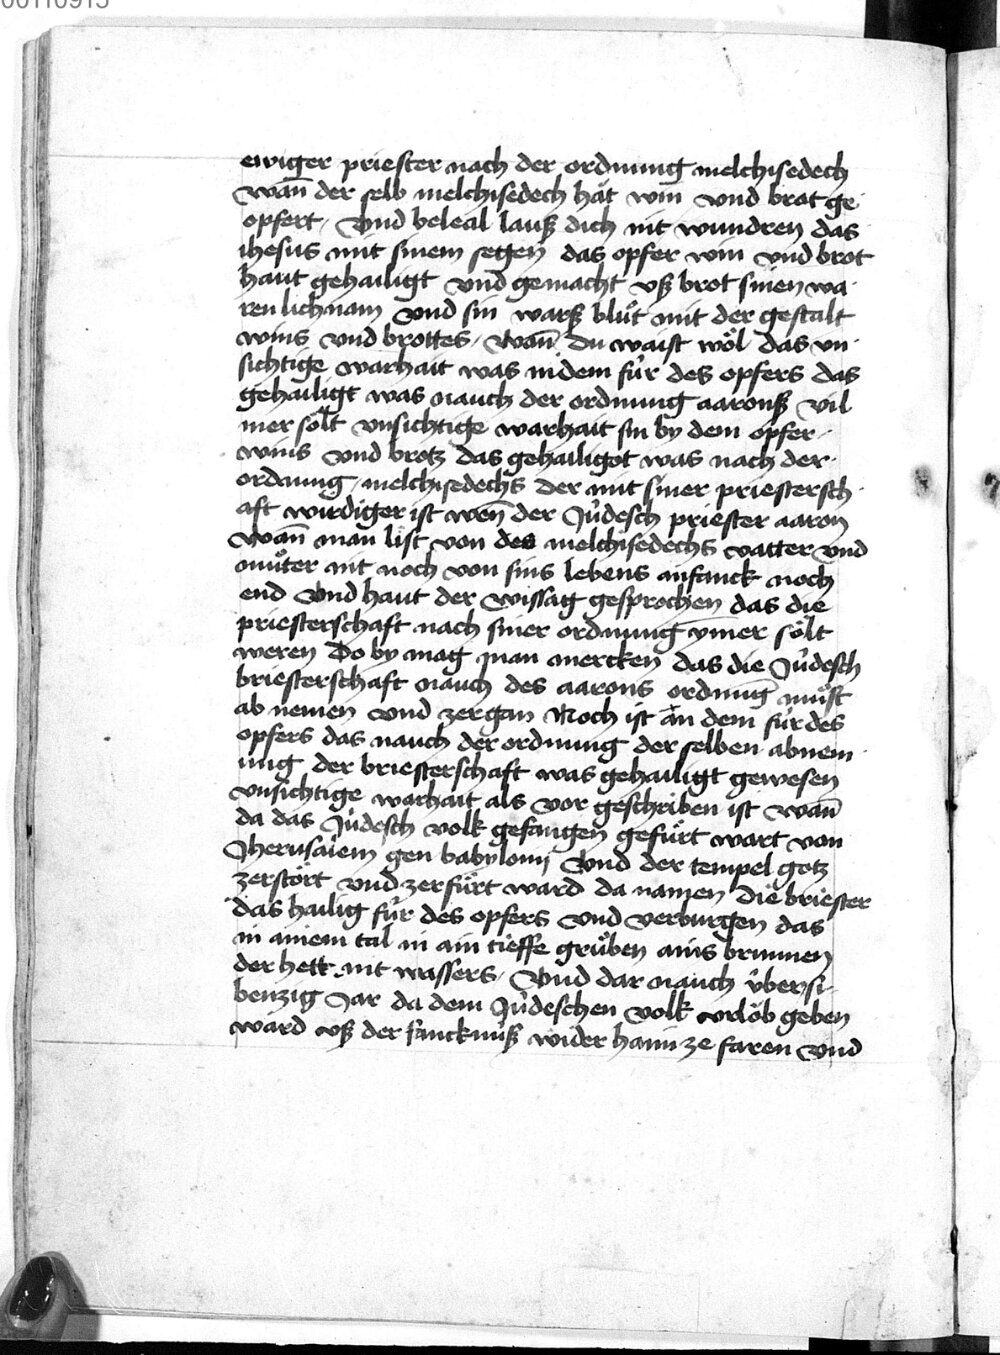 00110915
ewiger priester nach der ordnung melchisedech
wan̄ der selb melchisedech hät win vnd brot ge
opfert / Vnd beleal lauß dich nit wundren das
ihesus mit sinem segen das opfer win vnd brot
haut gehailigt vnd gemacht vß brot sinen wa
ren lichnam vnd sin warß blůt mit der gestalt
wins vnd brottes / Wan̄ du waist wöl das vn
sichtige warhait was in dem für des opfers das
gehailigt was nauch der ordnung aaronß vil
mer sölt vnsichtige warhait sin by dem opfer
wins vnd brotz das gehailigot was nach der
ordnung / melchisedechs der mit siner priestersch
aft wirdiger ist wen̄ der Jüdesch priester aaron
Wan̄ man list von des melchisedechs vatter vnd
můter nit noch von sins lebens anfanck noch
end Vnd haut der wissag gesprochen das die
priesterschaft nach siner ordnung ymer sölt
weren Do by mag man mercken das die Jüdesch
briesterschaft nauch des aarons ordnung můst
ab nemen vnd zergan Noch ist an dem für des
opfers das nauch der ordnung der selben abnem
ung der briesterschaft was gehailigt gewesen
vnsichtige warhait als vor geschriben ist wan̄
da das Jüdesch volk gefangen gefürt wart von
Jherusalem gen babylony Vnd der tempel gotz
zerstört vnd zerfürt ward da namen die briester
das hailig für des opfers vnd verburgen das
in ainem tal in ain tieffe grůben ains brunnen
der hett nit wassers / Vnd dar nauch über si
benzig Jar da dem Jüdeschen volk vrlöb geben
ward vß der fancknüß wider haim ze faren vnd